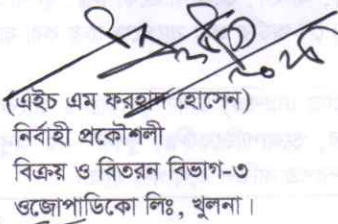 (এইচ এম ফরহাদ হোসেন)
নির্বাহী প্রকৌশলী
বিক্রয় ও বিতরন বিভাগ-৩
ওজোপাডিকো লিঃ, খুলনা।